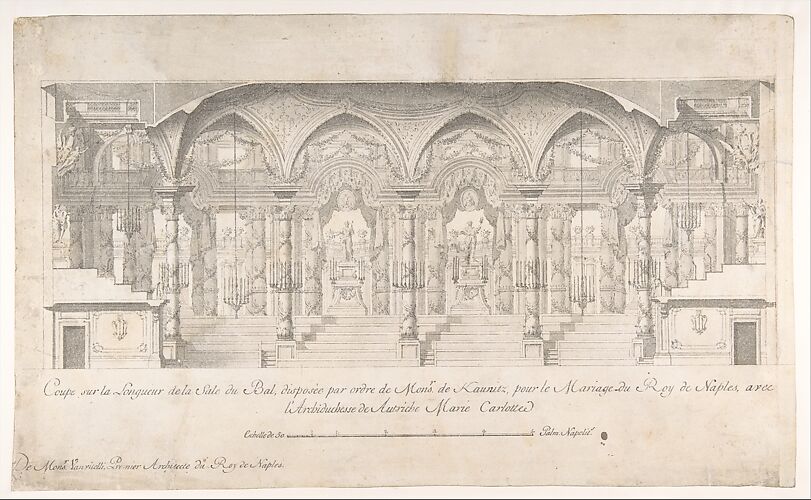 Coupe sur la Longueur de la Sale du Bal, disposée par ordre de Monsr. de Kaunitz, pour le Mariage du Roy de Naples, avec
l'Archiduchesse de Autriche Marie Carlotte
Echelle de 50 Palm. Napolit.
De Monsr. Vanvitelli, Premier Architecte du Roy de Naples.